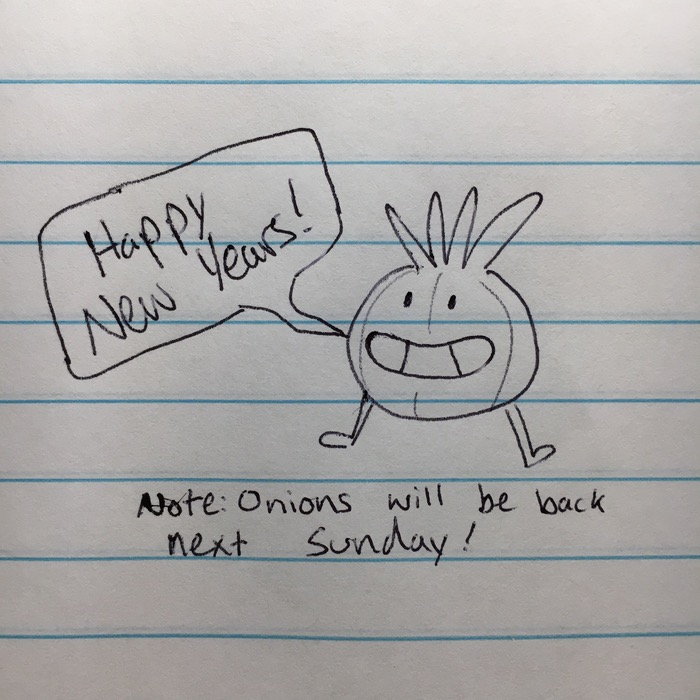 Happy
New Years!
Note: Onions will be back
next Sunday!